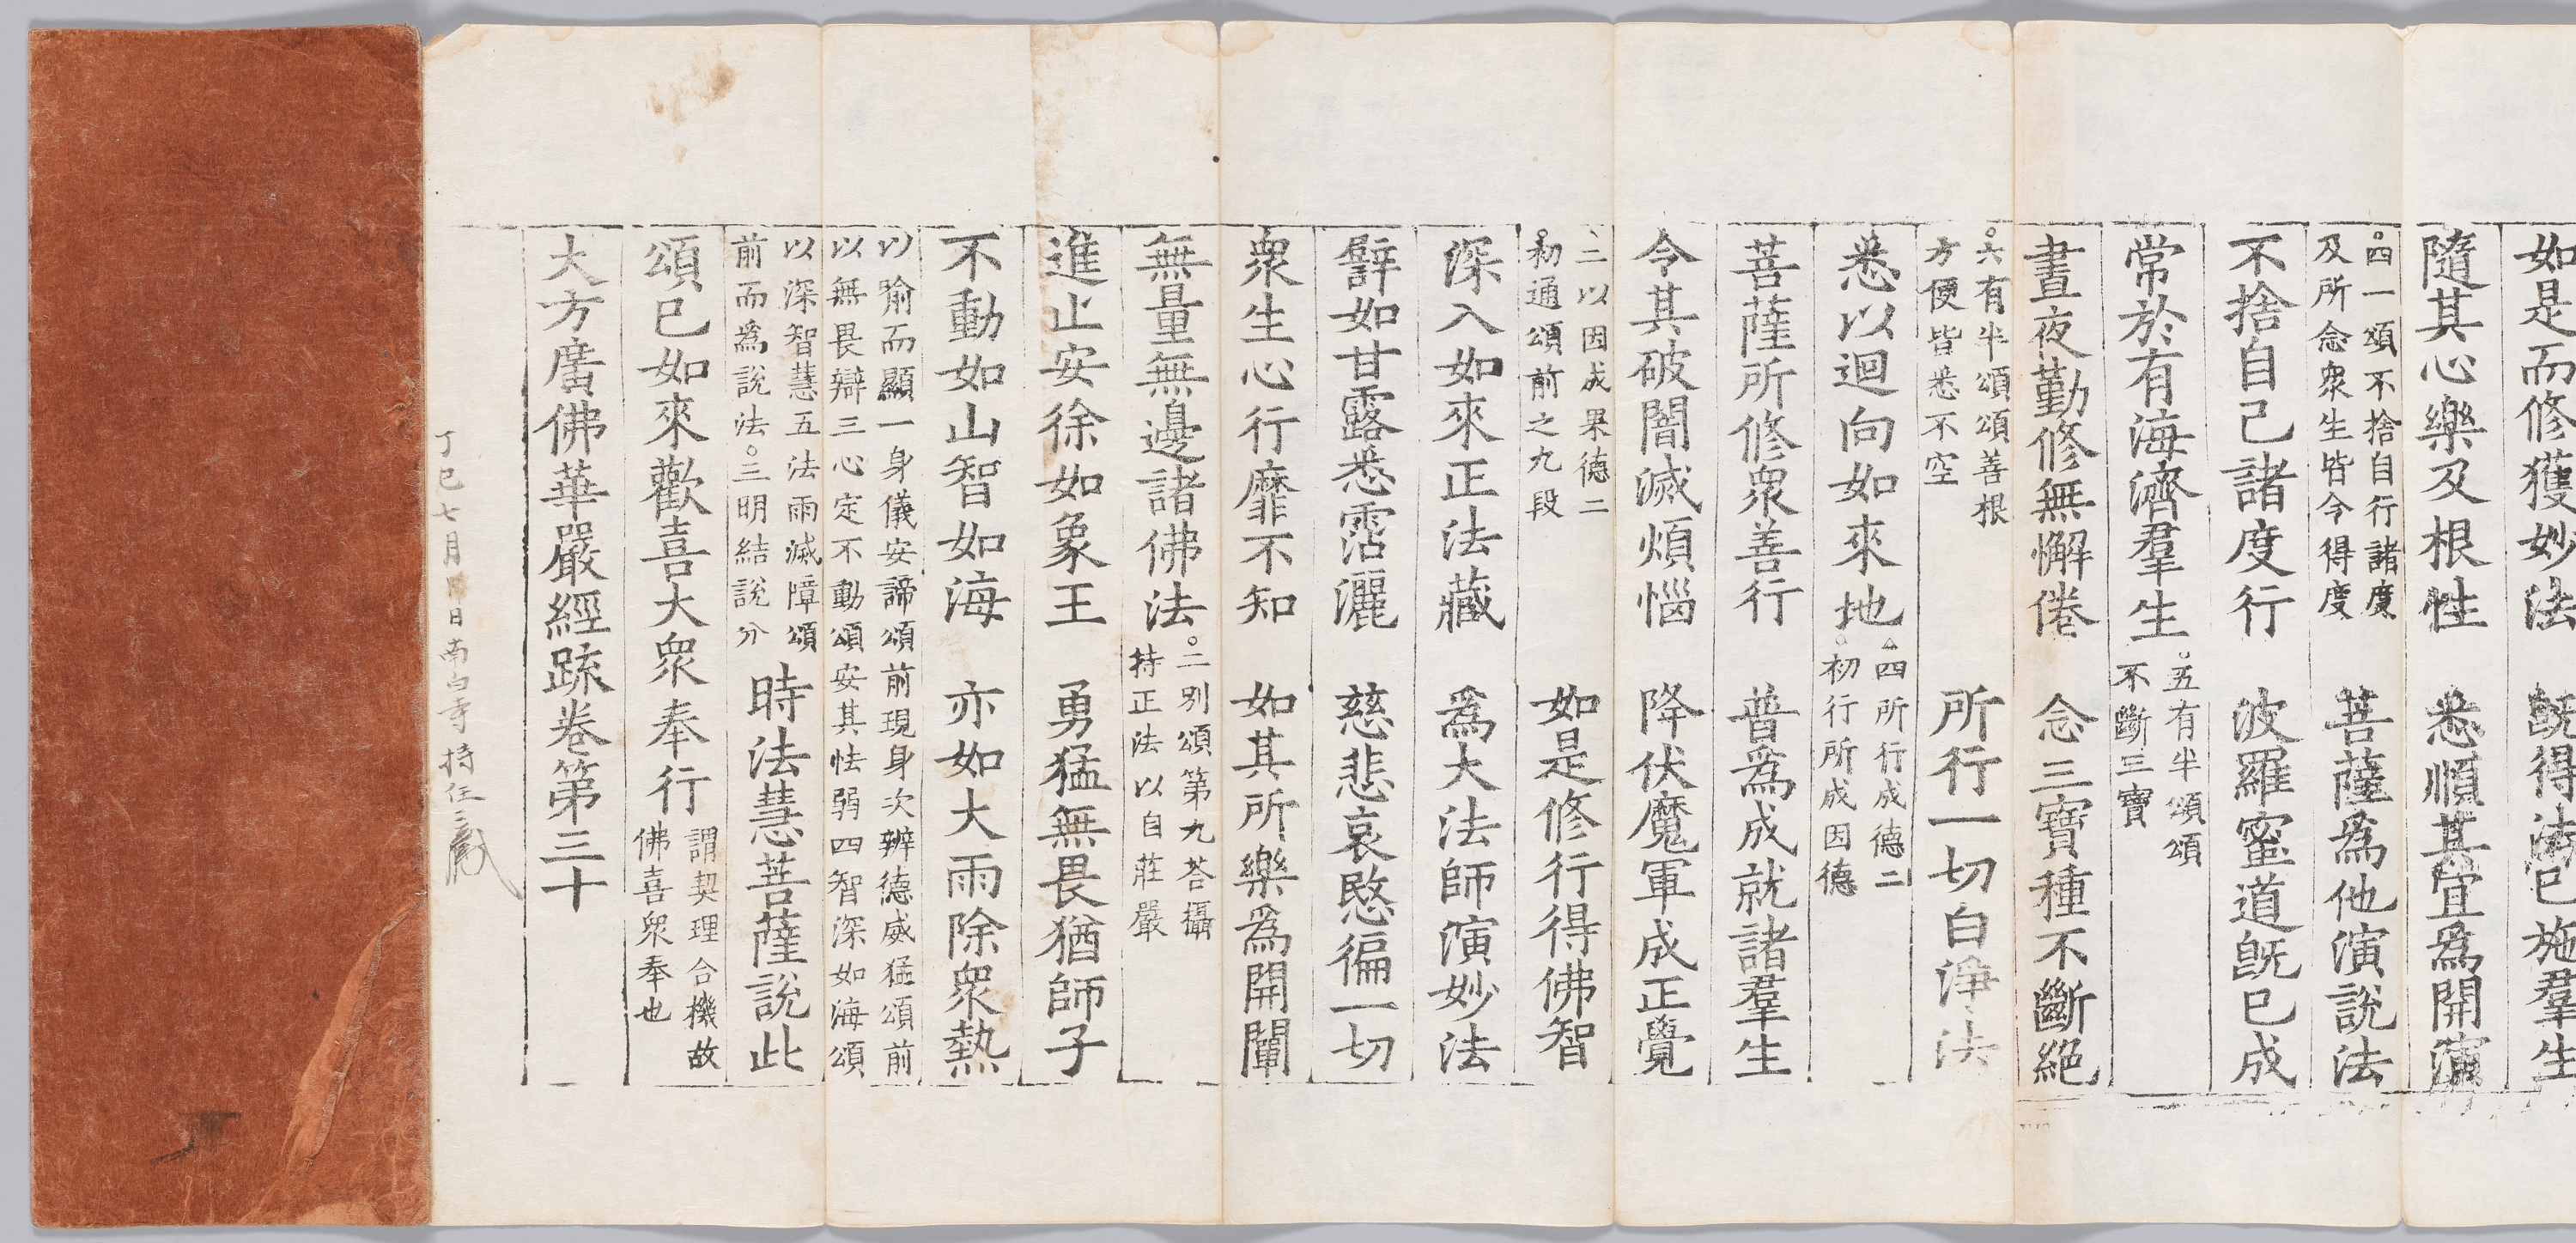 如是而修獲妙法　既得法已施羣生
隨其心樂及根性　悉順其宜爲開演
四一頌不捨自行諸度
及所念衆生皆令得度
菩薩爲他演說法
不捨自己諸度行　波羅蜜道旣已成
常於有海濟羣生
五有半頌頌
不斷三寶
晝夜勤修無懈倦　念三寶種不斷絕
六有半頌頌善根
方便皆悉不空
所行一切白淨法
悉以迴向如來地
四所行成德二
初行所成因德
菩薩所修衆善行　普爲成就諸羣生
令其破闇滅煩惱　降伏魔軍成正覺
二以因成果德二
初通頌前之九段
如是修行得佛智
深入如來正法藏　爲大法師演妙法
譬如甘露悉霑灑　慈悲哀愍徧一切
衆生心行靡不知　如其所樂爲開闡
無量無邊諸佛法
二別頌第九荅攝
持正法以自莊嚴
進止安徐如象王　勇猛無畏猶師子
不動如山智如海　亦如大雨除衆熱
以喻而顯一身儀安諦頌前現身次辨德威猛頌前
以無畏辯三心定不動頌安其怯弱四智深如海頌
以深智慧五法雨滅障頌
前而爲說法○三明結說分
時法慧菩薩說此
頌已如來歡喜大衆奉行
謂契理合機故
佛喜衆奉也
大方廣佛華嚴經疏卷第三十
丁巳七月日南白寺持任